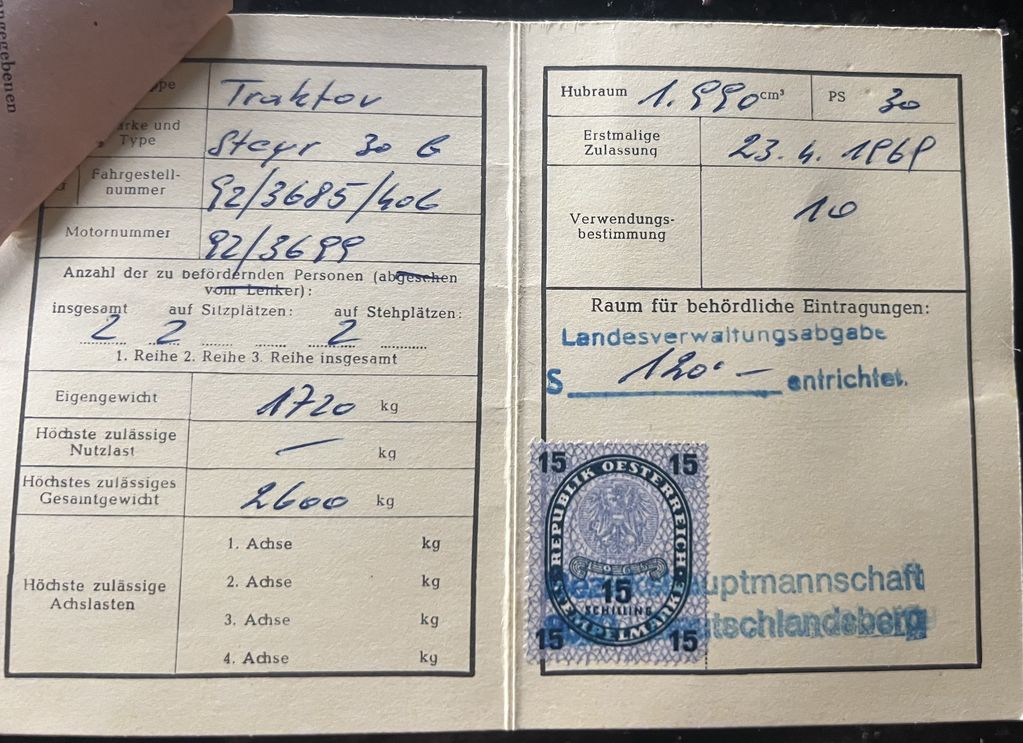 angegebenen
Traktor
Type
Steyr 30 G
Fahrgestell-
nummer
92/3685/406
Motornummer
92/3699
Anzahl der zu befördernden Personen (abgesehen
vom Lenker):
insgesamt auf Sitzplätzen: auf Stehplätzen:
2 2 2
1. Reihe 2. Reihe 3. Reihe insgesamt
Eigengewicht 1720 kg
Höchste zulässige
Nutzlast — kg
Höchstes zulässiges
Gesamtgewicht 2600 kg
Höchste zulässige
Achslasten
1. Achse kg
2. Achse kg
3. Achse kg
4. Achse kg
Hubraum 1.990 cm³ PS 30
Erstmalige
Zulassung 23.4.1969
Verwendungs-
bestimmung 10
Raum für behördliche Eintragungen:
Landesverwaltungsabgabe
S 120.— entrichtet.
15 15
REPUBLIK OESTERREICH
15
SCHILLING
STEMPELMARKE
15 15